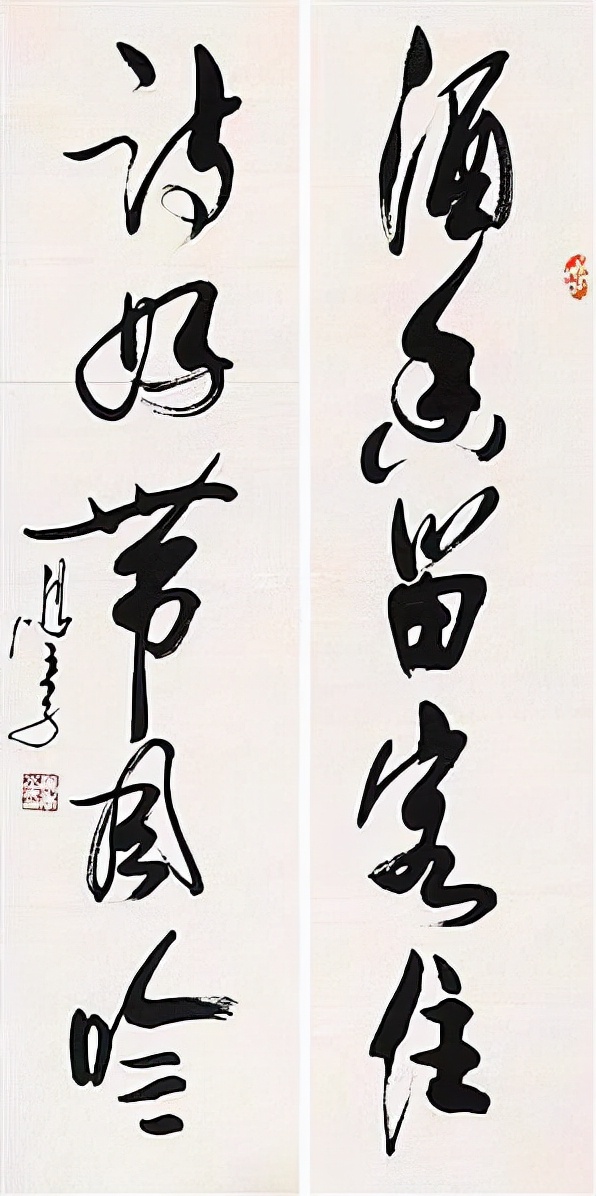 酒香留客住
诗好带风吟